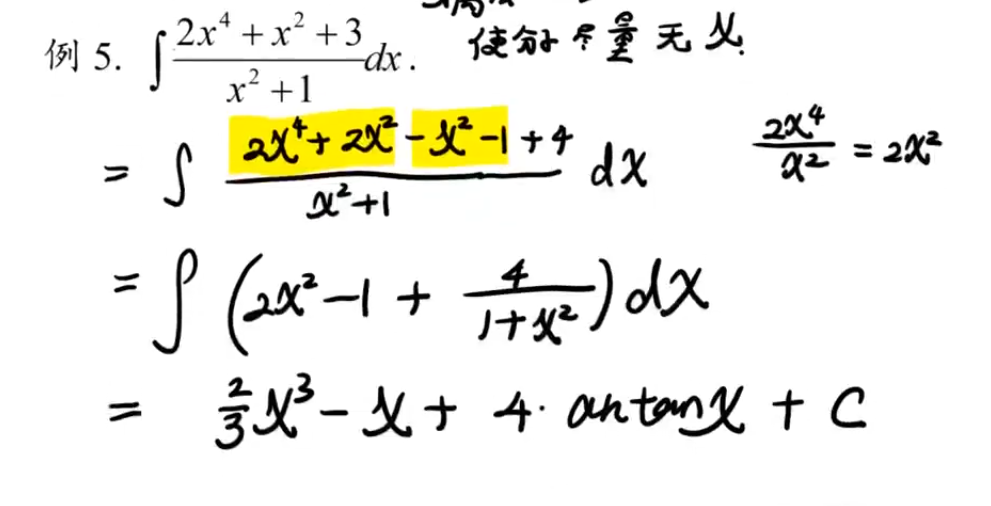 例 5. ∫ (2x⁴ + x² + 3)/(x² + 1) dx. 使分子尽量无 x.
= ∫ (2x⁴ + 2x² - x² - 1 + 4)/(x² + 1) dx    2x⁴/x² = 2x²
= ∫ (2x² - 1 + 4/(1 + x²)) dx
= 2/3 x³ - x + 4 · arctan x + C